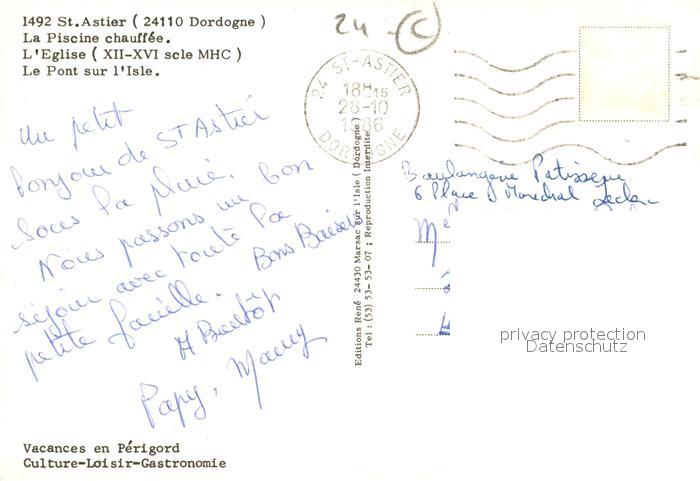 1492 St.Astier ( 24110 Dordogne )
La Piscine chauffée.
L'Eglise ( XII-XVI scle MHC )
Le Pont sur l'Isle.
24 C
24 ST-ASTIER
18H15
28-10
1986
DORDOGNE
Un petit
bonjour de ST Astier
sous la pluie.
Nous passons un bon
séjour avec toute la
petite famille. Bons Baisers
A Bientôt
Papy, Mamy
Editions René 24430 Marsac sur l'Isle ( Dordogne )
Tel : (53) 53-53-07 ; Reproduction Interdite
Boulangerie Patisserie
6 Place Marechal Leclerc
privacy protection
Datenschutz
Vacances en Périgord
Culture-Loisir-Gastronomie